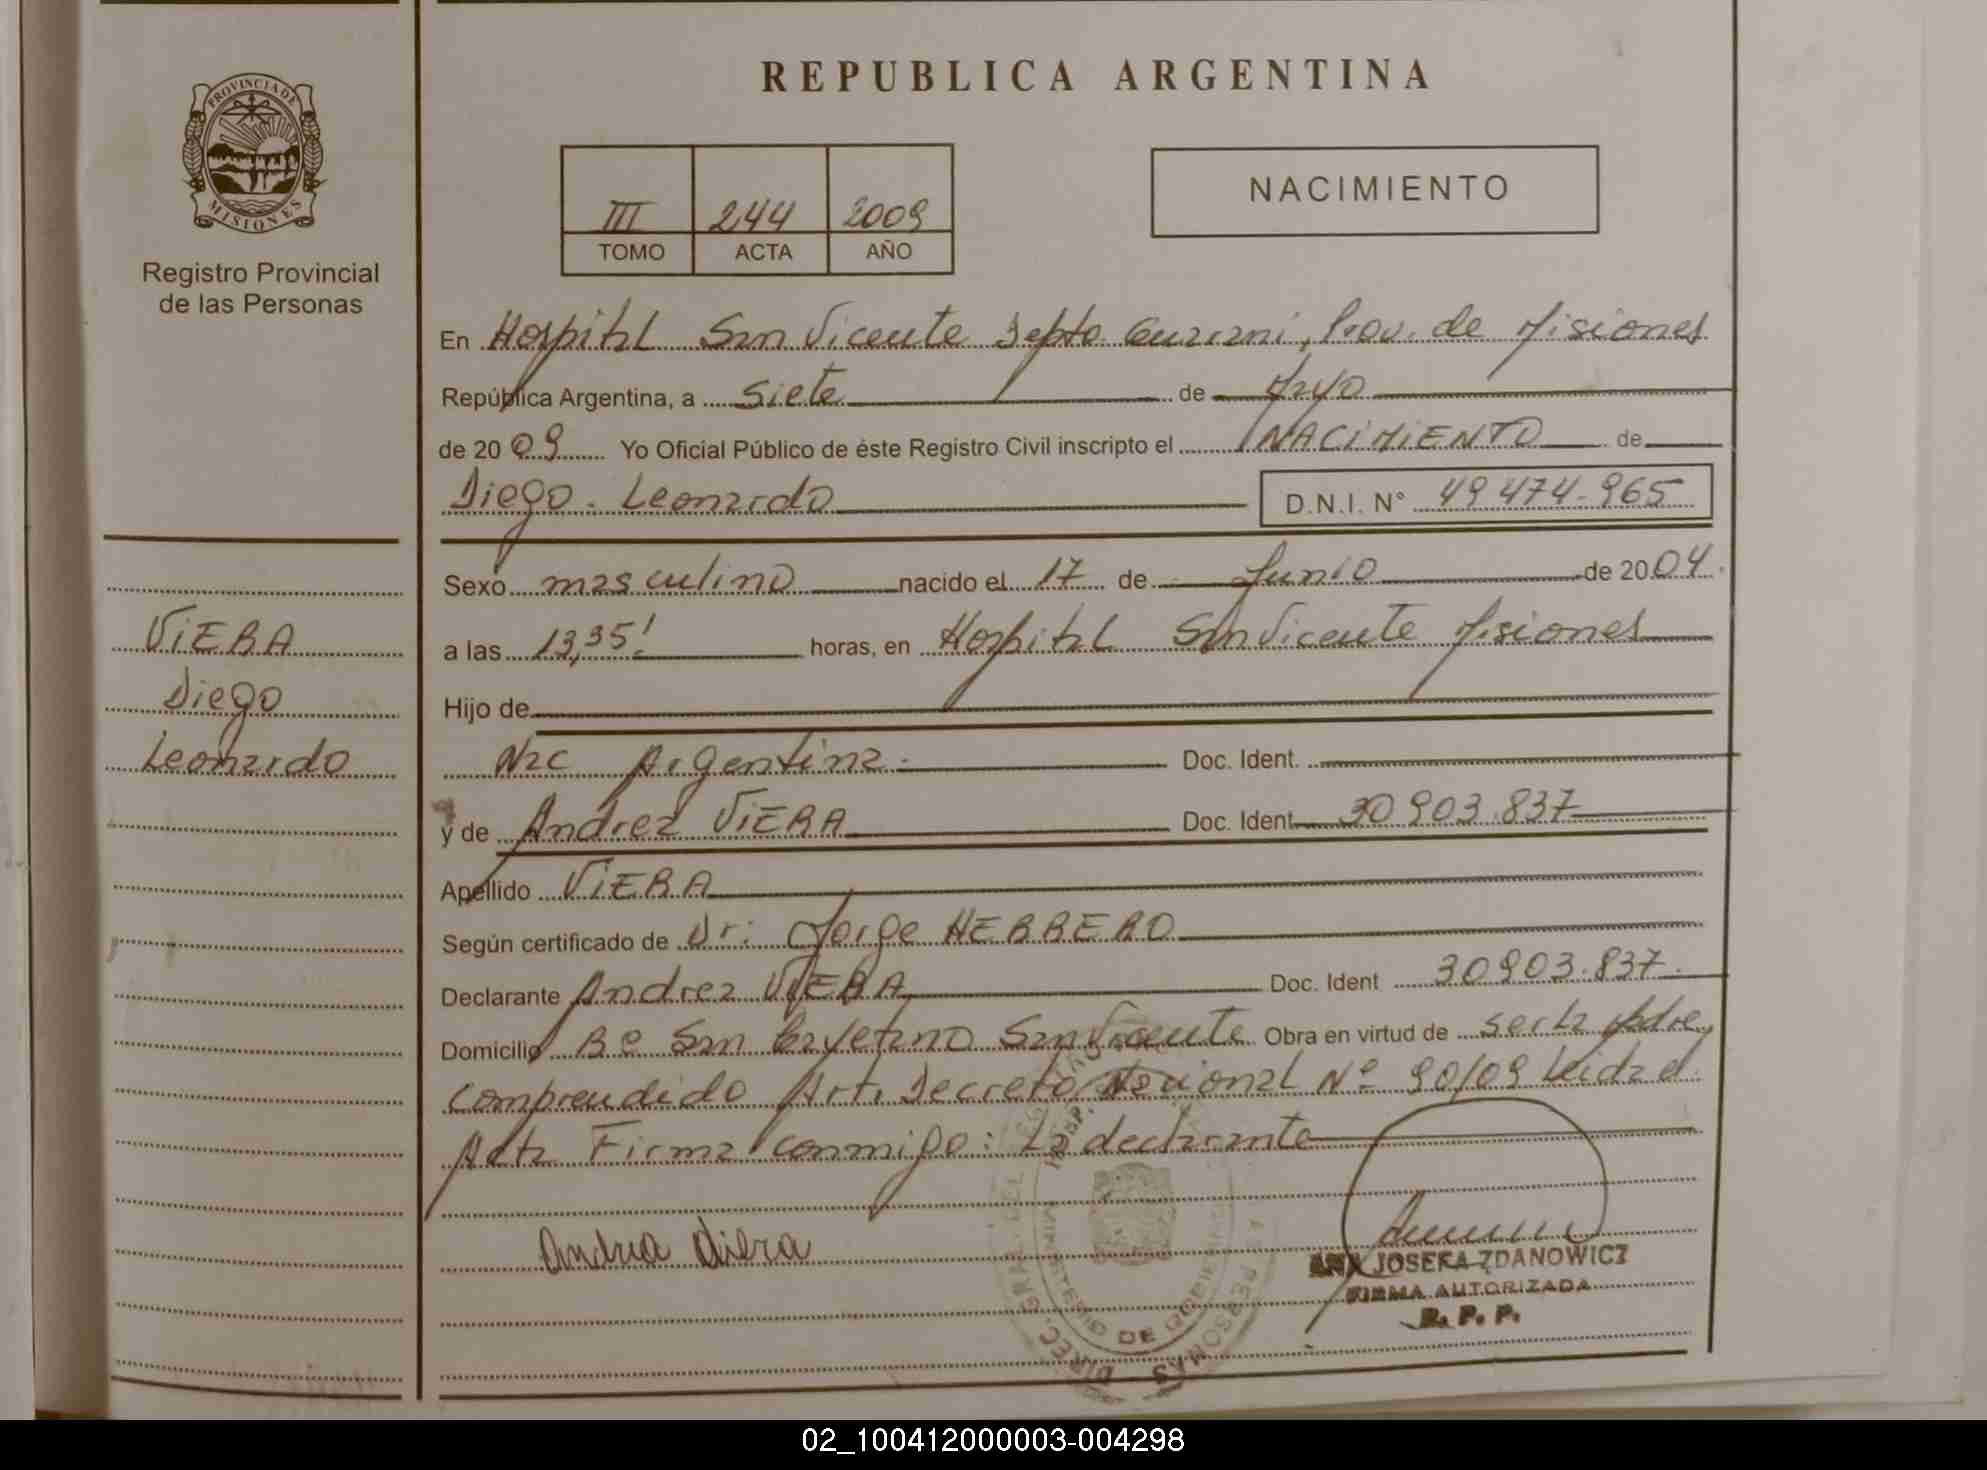 PROVINCIA DE
MISIONES
Registro Provincial
de las Personas
VIERA
Diego
Leonardo
REPUBLICA ARGENTINA
III 244 2009
TOMO ACTA AÑO
NACIMIENTO
En Hospital San Vicente Depto Guarani, Prov. de Misiones
República Argentina, a siete de Mayo
de 2009 Yo Oficial Público de éste Registro Civil inscripto el NACIMIENTO de
Diego Leonardo D.N.I. N° 49474.965
Sexo masculino nacido el 17 de Junio de 2004
a las 13,35' horas, en Hospital San Vicente Misiones
Hijo de
Nac Argentina Doc. Ident.
y de Andrea VIERA Doc. Ident 30903.837
Apellido VIERA
Según certificado de Dr: Jorge HERRERO
Declarante Andrea VIERA Doc. Ident 30903.837
Domicilio Bº San Cayetano San Vicente Obra en virtud de ser la Madre,
Comprendido Art. Decreto Nacional Nº 90/09 Leida el
Acta Firma conmigo: La declarante
Andrea Viera
ANA JOSEFA ZDANOWICZ
FIRMA AUTORIZADA
R. P. P.
02_100412000003-004298